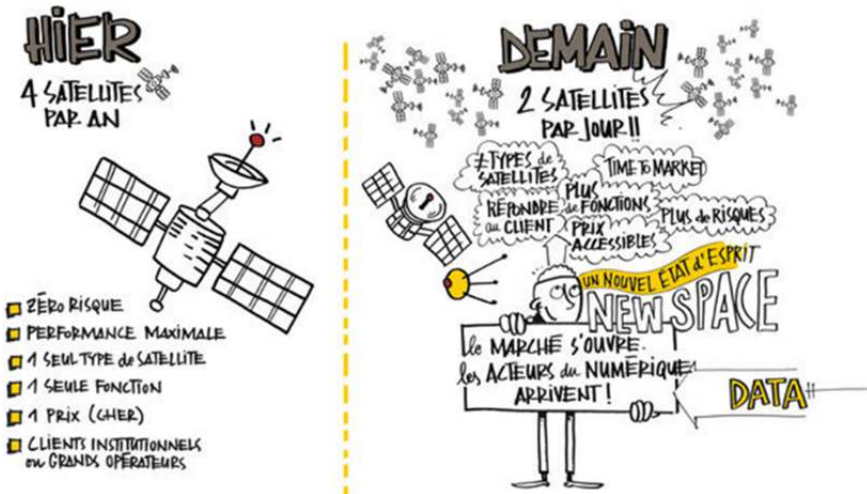 HiER
4 SATELLITES
PAR AN
ZÉRO RISQUE
PERFORMANCE MAXIMALE
1 SEUL TYPE de SATELLITE
1 SEULE FONCTION
1 PRIX (CHER)
CLIENTS INSTITUTIONNELS
ou GRANDS OPÉRATEURS
DEMAiN
2 SATELLITES
PAR JOUR !!
≠ TYPES de
SATELLITES
TIME TO MARKET
PLUS
de FONCTIONS
RÉPONDRE
au CLIENT
PLUS de RISQUES
PRIX
ACCESSIBLES
UN NOUVEL ÉTAT d'ESPRIT
NEW SPACE
le MARCHÉ S'OUVRE.
les ACTEURS du NUMÉRIQUE
ARRIVENT !
DATA